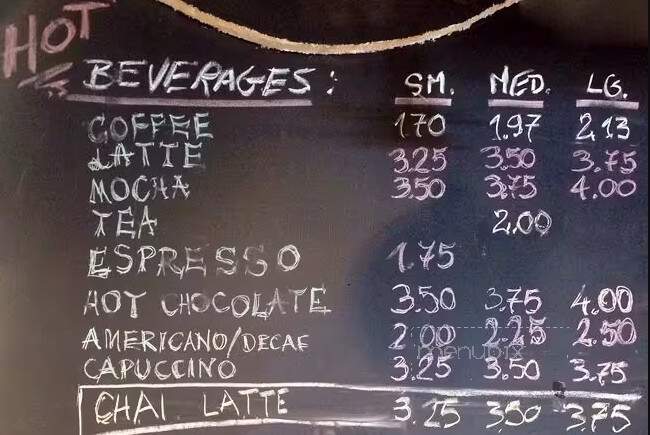 HOT
BEVERAGES: SM. MED. LG.
COFFEE 1.70 1.97 2.13
LATTE 3.25 3.50 3.75
MOCHA 3.50 3.75 4.00
TEA 2.00
ESPRESSO 1.75
HOT CHOCOLATE 3.50 3.75 4.00
AMERICANO/DECAF 2.00 2.25 2.50
menupix
CAPUCCINO 3.25 3.50 3.75
CHAI LATTE 3.25 3.50 3.75